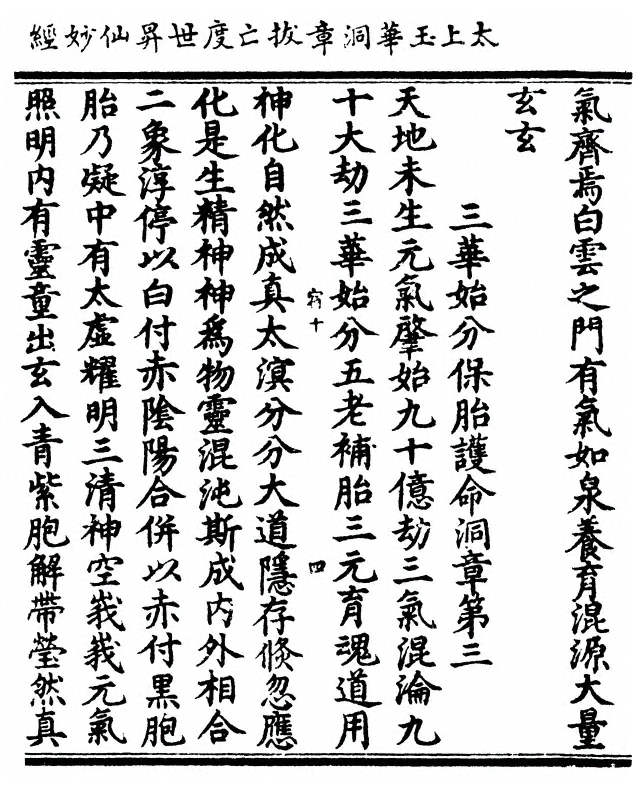 太上玉華洞章拔亡度世昇仙妙經
氣齊焉白雲之門有氣如泉養育混源大量
玄玄
三華始分保胎護命洞章第三
天地未生元氣肇始九十億劫三氣混淪九
十大劫三華始分五老補胎三元育魂道用
竆十
四
神化自然成真太溟分分大道隱存倏忽應
化是生精神神為物靈混沌斯成內外相合
二象淳停以白付赤陰陽合併以赤付黑胞
胎乃凝中有太虛耀明三清神空峩峩元氣
照明內有靈童出玄入青紫胞解帶瑩然真